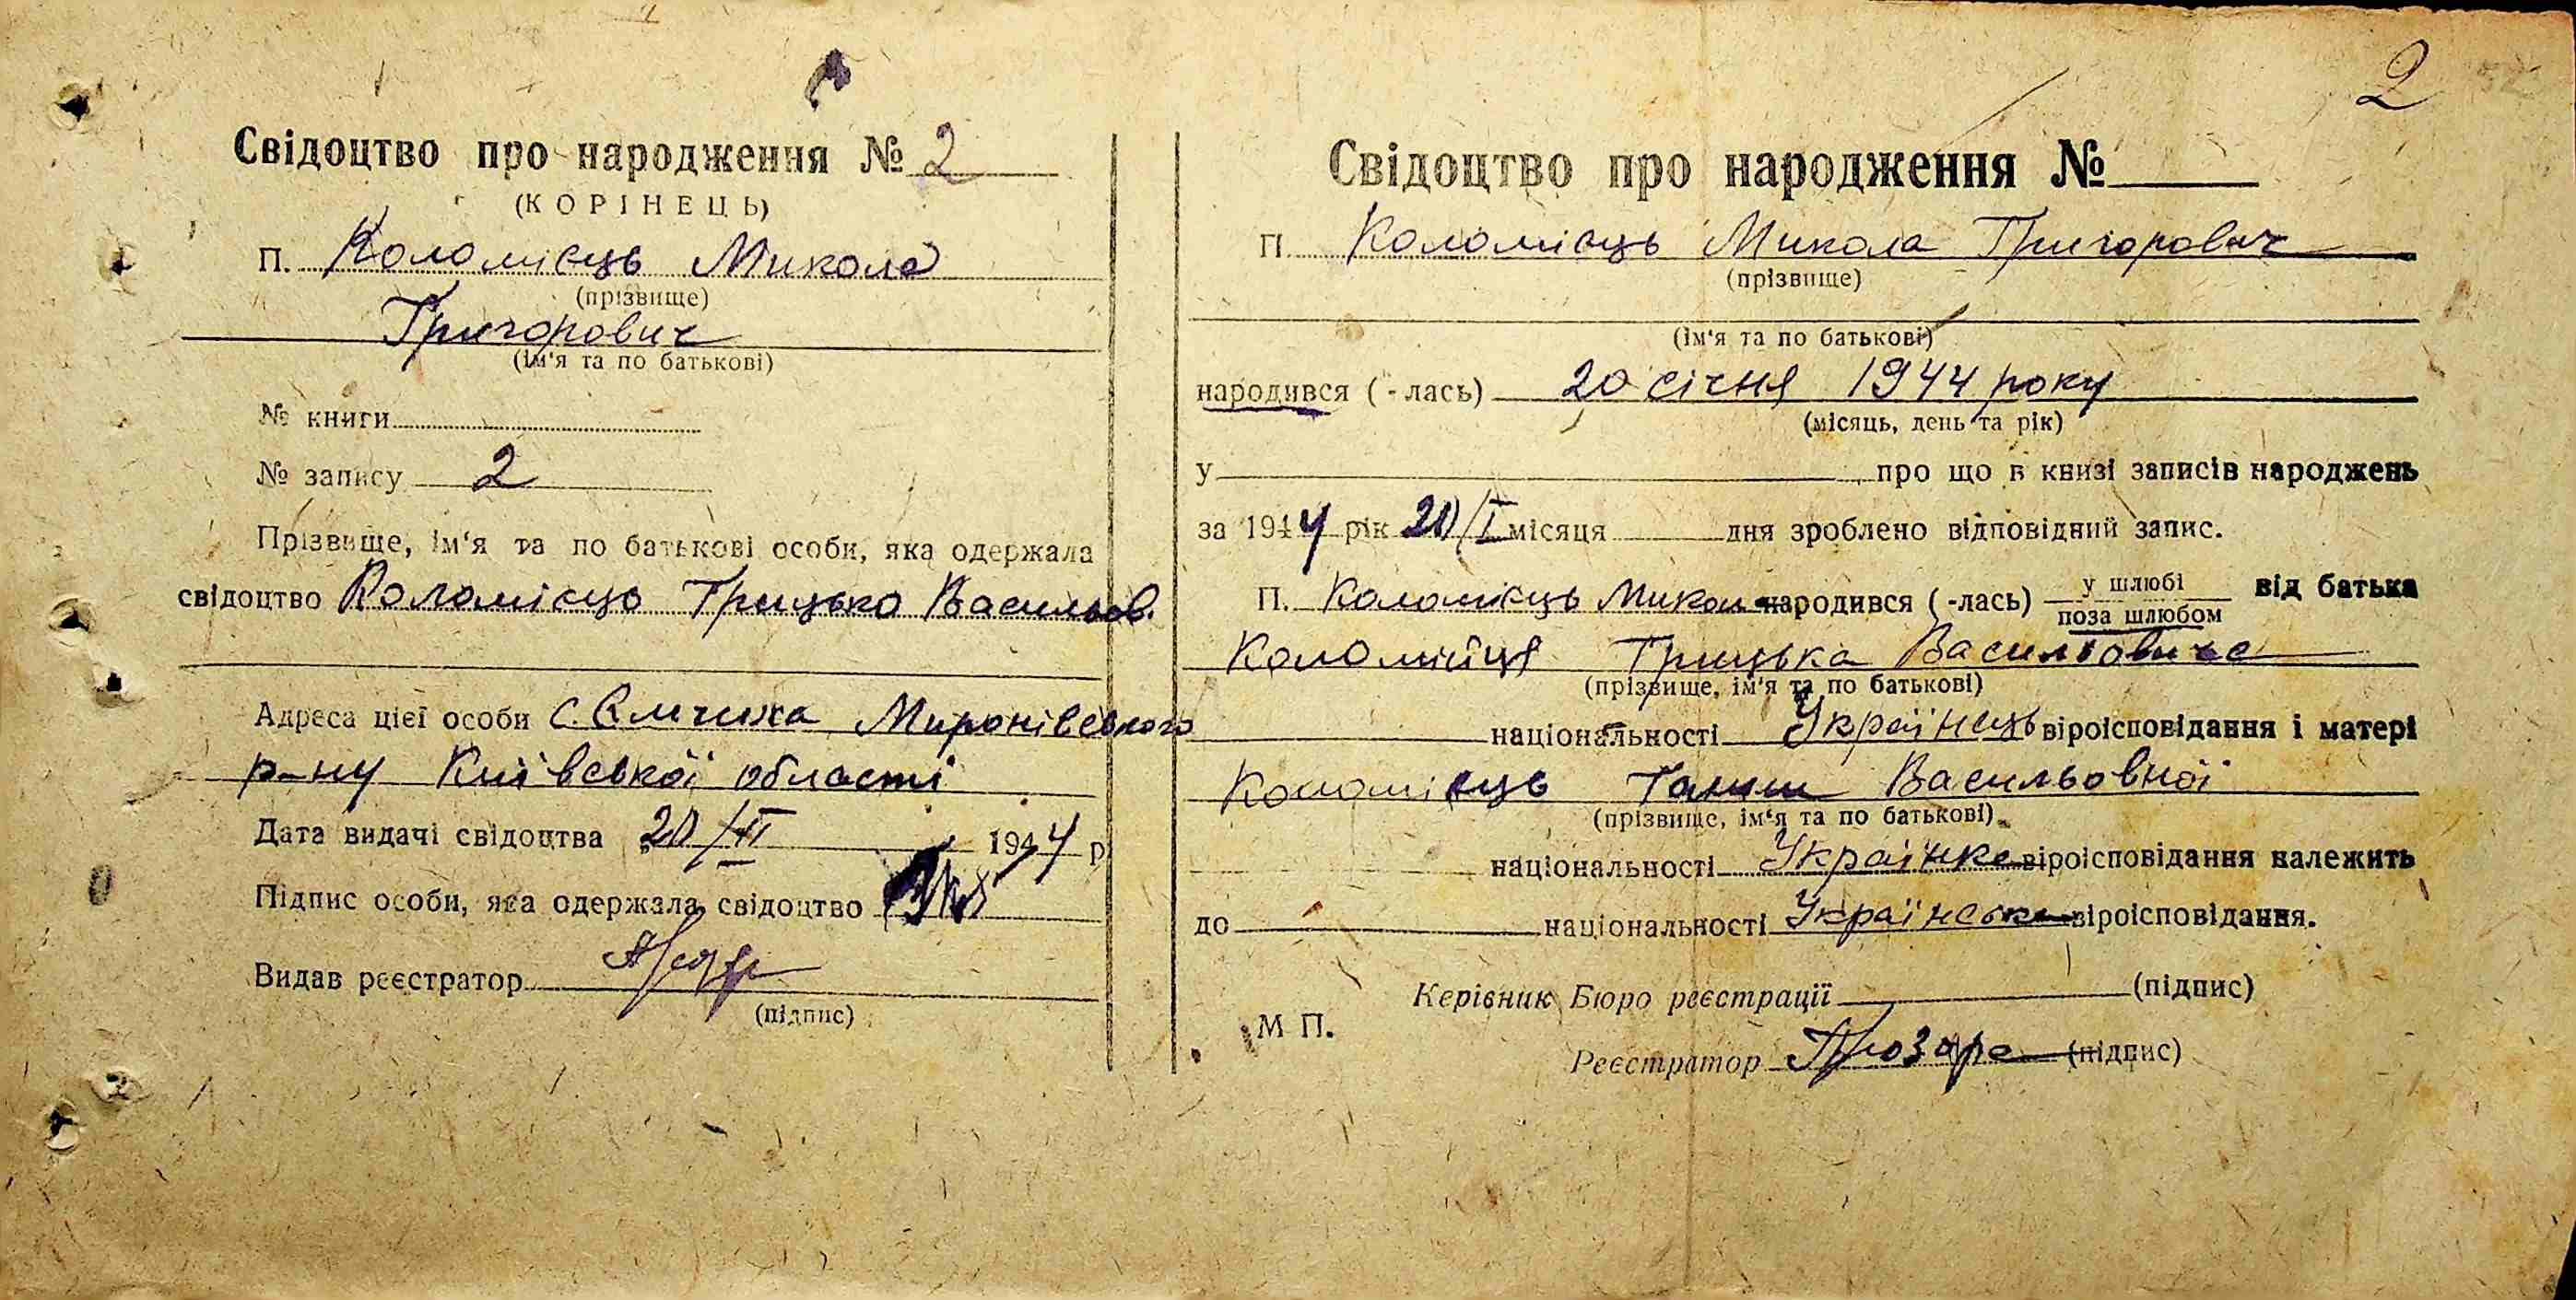 2
Свідоцтво про народження № 2
(КОРІНЕЦЬ)
П. Коломієць Микола
(прізвище)
Григорович
(ім'я та по батькові)
№ книги
№ запису 2
Прізвище, ім'я та по батькові особи, яка одержала
свідоцтво Коломієць Грицько Васильов.
Адреса цієї особи с. Ємчиха Миронівського
р-ну Київської області
Дата видачі свідоцтва 20/II 1944 р
Підпис особи, яка одержала свідоцтво
Видав реєстратор
(підпис)
Свідоцтво про народження №
П. Коломієць Микола Григорович
(прізвище)
(ім'я та по батькові)
народився (-лась) 20 січня 1944 року
(місяць, день та рік)
у про що в книзі записів народжень
за 1944 рік 20/I місяця дня зроблено відповідний запис.
П. Коломієць Микола народився (-лась) у шлюбі від батька
поза шлюбом
Коломійця Грицька Васильовича
(прізвище, ім'я та по батькові)
національності Українець віроісповідання і матері
Коломієць Ганни Васильовної
(прізвище, ім'я та по батькові)
національності Українка віроісповідання належить
до національності віроісповідання.
Керівник Бюро реєстрації (підпис)
М П.
Реєстратор (підпис)